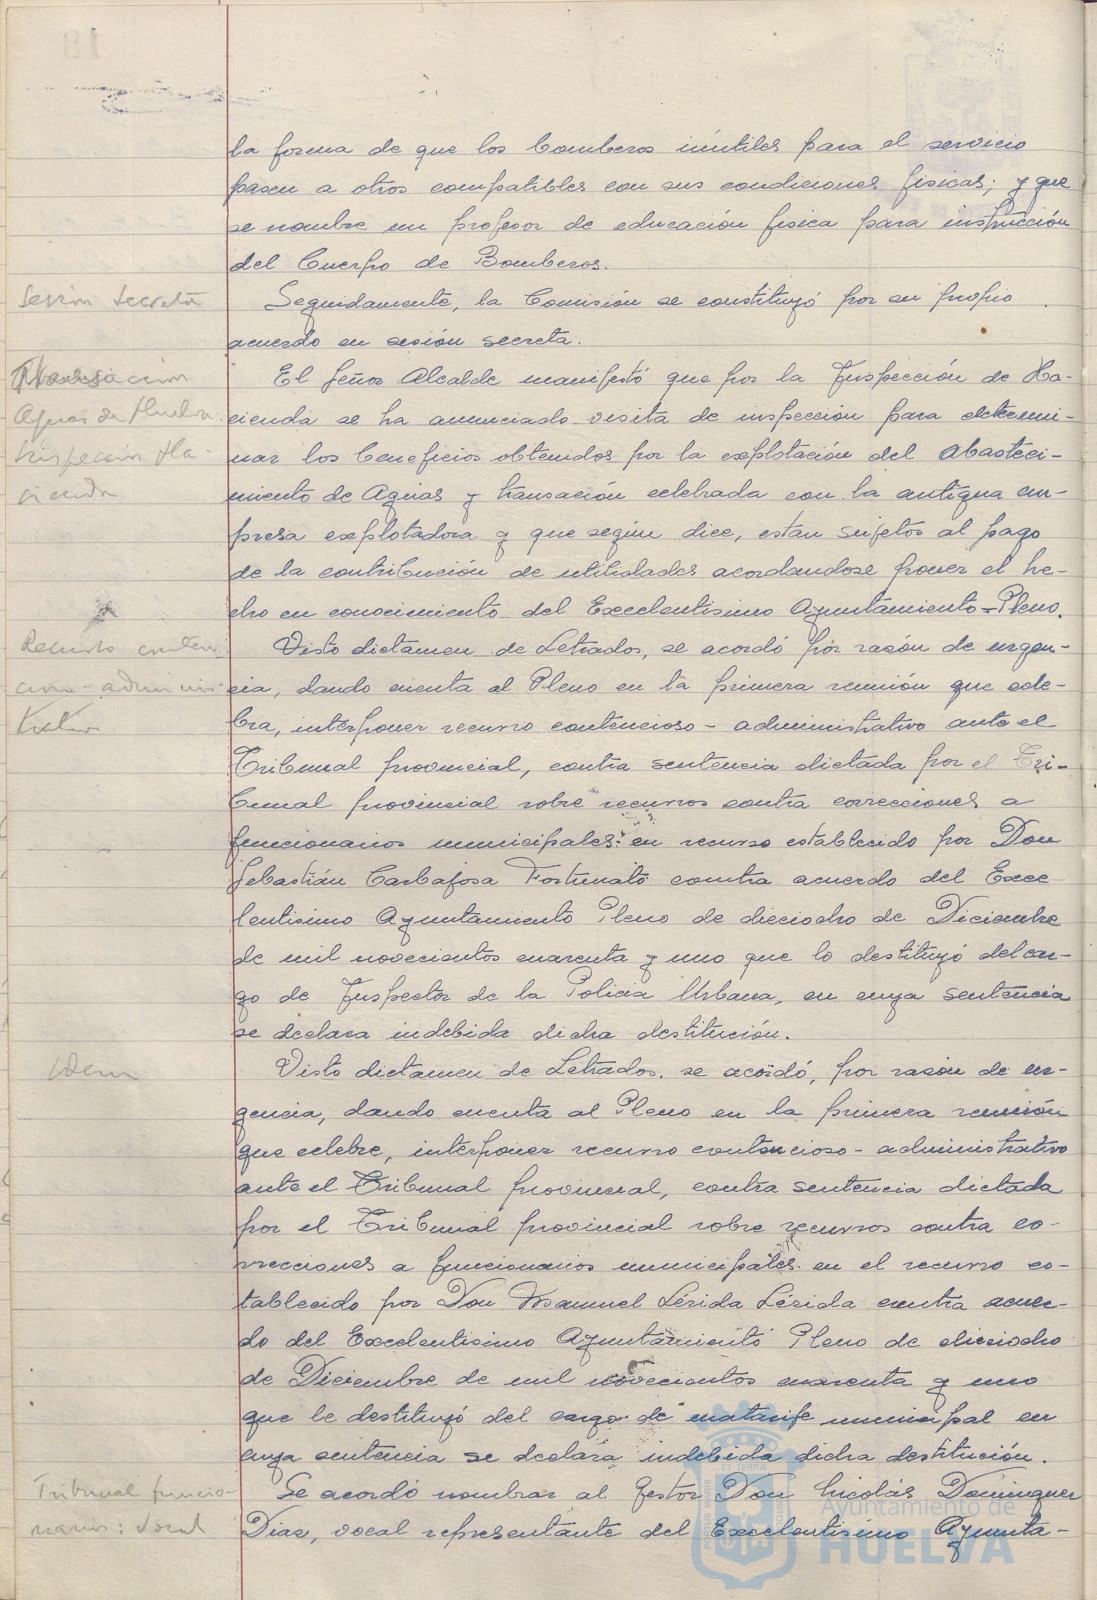 la forma de que los bomberos inútiles para el servicio
pasen a otros compatibles con sus condiciones fisicas; y que
se nombre un profesor de educación fisica para instrucción
del Cuerpo de Bomberos.
Sesion secreta
Seguidamente, la Comisión se constituyó por su propio
acuerdo en sesión secreta.
Aguas de Huelva
Inspeccion Ha-
cienda
El Señor Alcalde manifestó que por la Inspección de Ha-
cienda se ha anunciado visita de inspección para determi-
nar los beneficios obtenidos por la explotación del Abasteci-
miento de Aguas y transación celebrada con la antigua em-
presa explotadora y que según dice, estan sujetos al pago
de la contribución de utilidades acordandose poner el he-
cho en conocimiento del Excelentisimo Ayuntamiento-Pleno.
Recurso conten
cioso-adminis
trativo
Visto dictamen de Letrados, se acordó por razón de urgen-
cia, dando cuenta al Pleno en la primera reunión que cele-
bra, interponer recurso contencioso-administrativo ante el
Tribunal provincial, contra sentencia dictada por el Tri-
bunal provincial sobre recursos contra correcciones a
funcionarios municipales en recurso establecido por Don
Sebastián Carbajosa Fortunato contra acuerdo del Exce
lentisimo Ayuntamiento Pleno de dieciocho de Diciembre
de mil novecientos cuarenta y uno que lo destituyó del car-
go de Inspector de la Policia Urbana, en cuya sentencia
se declara indebida dicha destitución.
Idem
Visto dictamen de Letrados. se acordó, por razón de ur-
gencia, dando cuenta al Pleno en la primera reunión
que celebre, interponer recurso contencioso-administrativo
ante el Tribunal provincial, contra sentencia dictada
por el Tribunal provincial sobre recursos contra co-
rrecciones a funcionarios municipales en el recurso es-
tablecido por Don Manuel Lérida Lérida contra acuer-
do del Excelentisimo Ayuntamiento Pleno de dieciocho
de Diciembre de mil novecientos cuarenta y uno
que le destituyó del cargo de matarife municipal en
cuya sentencia se declara indebida dicha destitución.
Tribunal funcio-
narios: Vocal
Se acordó nombrar al Gestor Don Nicolás Dominguez
Diaz, vocal representante del Excelentisimo Ayunta-
Ayuntamiento de
HUELVA